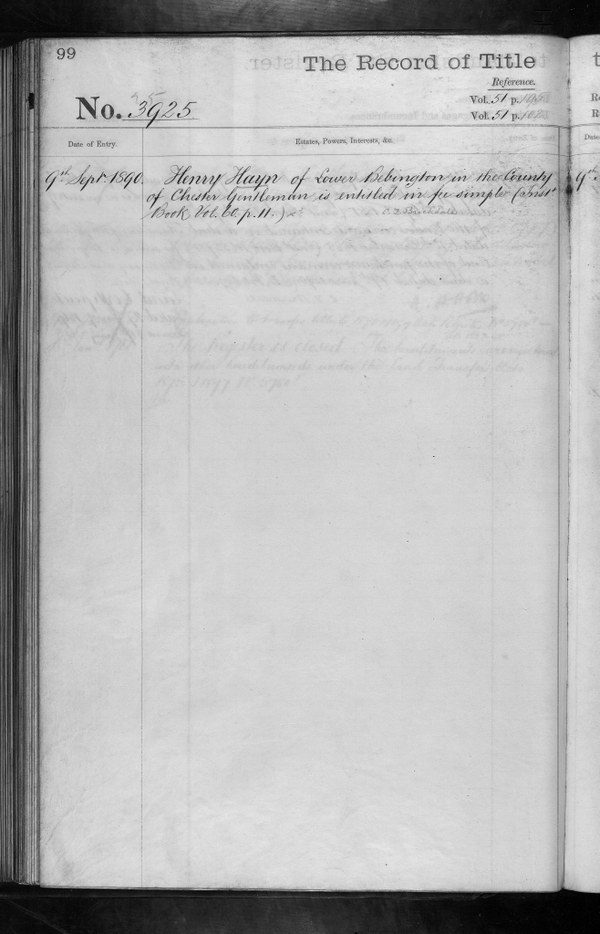 99
The Record of Title
Reference.
No. 3925
Vol. 51 p.
Vol. 51 p.
Date of Entry.
Estates, Powers, Interests, &c.
9th Sept 1890. Henry Hayn of Lower Bebington in the County
of Chester Gentleman is entitled in fee simple (First
Book Vol. 60. p. 11.)